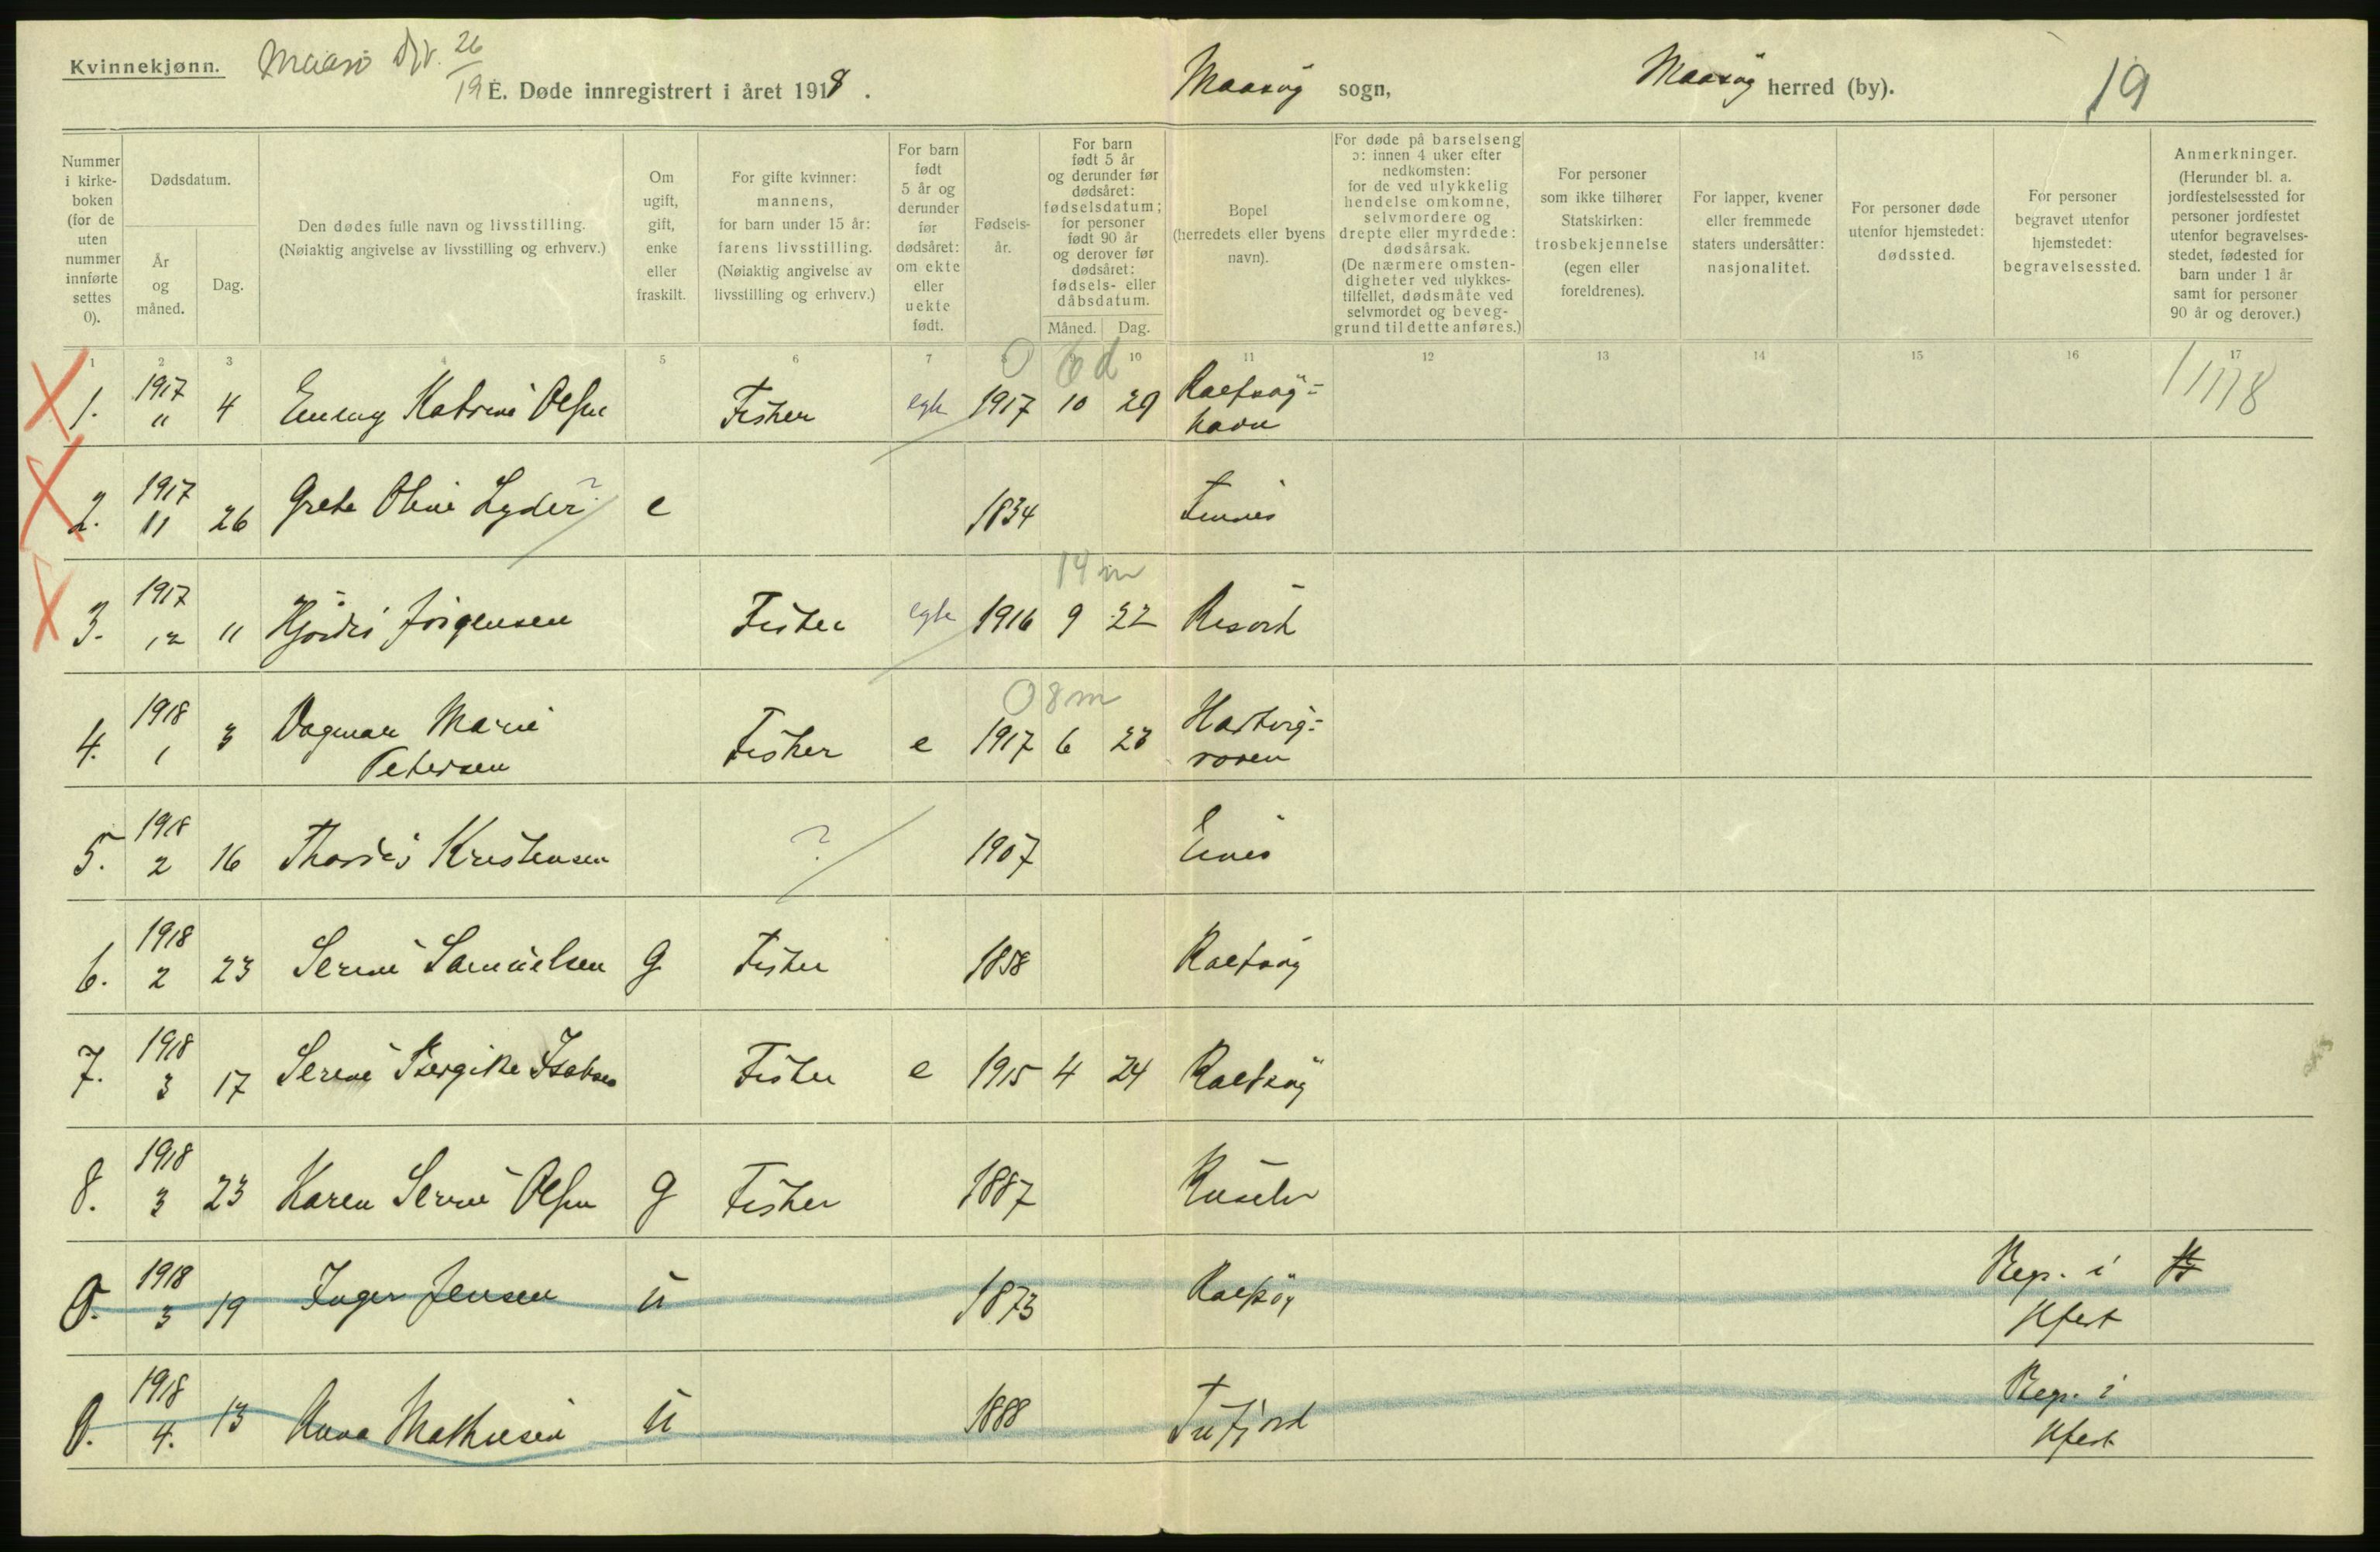 Kvinnekjønn.
Maasø 26
19
E. Døde innregistrert i året 1918.
Maasøy sogn,
Maasøy herred (by).
19
Nummer i kirke-boken (for de uten nummer innførte settes 0).
Dødsdatum.
År og måned.
Dag.
Den dødes fulle navn og livsstilling.
(Nøiaktig angivelse av livsstilling og erhverv.)
Om ugift, gift, enke eller fraskilt.
For gifte kvinner: mannens, for barn under 15 år: farens livsstilling.
(Nøiaktig angivelse av livsstilling og erhverv.)
For barn født 5 år og derunder før dødsåret: om ekte eller uekte født.
Fødsels-år.
For barn født 5 år og derunder før dødsåret: fødselsdatum; for personer født 90 år og derover før dødsåret: fødsels- eller dåbsdatum.
Måned. Dag.
Bopel (herredets eller byens navn).
For døde på barselseng ɔ: innen 4 uker efter nedkomsten: for de ved ulykkelig hendelse omkomne, selvmordere og drepte eller myrdede: dødsårsak.
(De nærmere omsten-digheter ved ulykkes-tilfellet, dødsmåte ved selvmordet og beveg-grund til dette anføres.)
For personer som ikke tilhører Statskirken: trosbekjennelse (egen eller foreldrenes).
For lapper, kvener eller fremmede staters undersåtter: nasjonalitet.
For personer døde utenfor hjemstedet: dødssted.
For personer begravet utenfor hjemstedet: begravelsessted.
Anmerkninger.
(Herunder bl. a. jordfestelsessted for personer jordfestet utenfor begravelses-stedet, fødested for barn under 1 år samt for personer 90 år og derover.)
1 2 3 4 5 6 7 10 11 12 13 14 15 16 17
0 6 d
1. 1917 11 4 Emmy Katrine Olsen Fisker egte 1917 10 29 Rolfsøy-havn
2. 1917 11 26 Grete Oline Lyder ? e 1834
14 m
3. 1917 12 11 Hjørdis Jörgensen Fisker egte 1916 9 22
0 8 m
4. 1918 1 3 Dagmar Marie Petersen Fisker e 1917 6 23
5. 1918 2 16 Thordis Kristensen ? 1907
6. 1918 2 23 Serine Samuelsen g Fisker 1858 Rolfsøy
7. 1918 3 17 Serine Fisker e 1915 4 24 Rolfsøy
8. 1918 3 23 Karen Serine Olsen g Fisker 1887
0. 1918 3 19 Inger Jensen u 1873 Rolfsøy Begr. i Hfest
0. 1918 4. 13 Anna Mathisen u 1888 Tufjord Begr. i Hfest